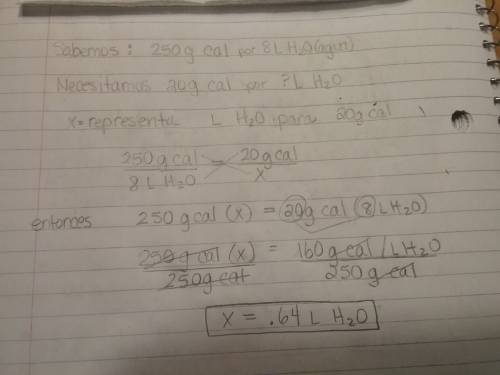 Sabemos: 250g cal por 8L H2O(agua)
Necesitamos 20g cal por ?L H2O
x=representa L H2O para 20g cal
250g cal = 20g cal
8 L H2O x
entonces 250g cal (x) = 20g cal (8LH2O)
250g cal (x) = 160g cal/LH2O
250g cal 250g cal
x = .64 L H2O